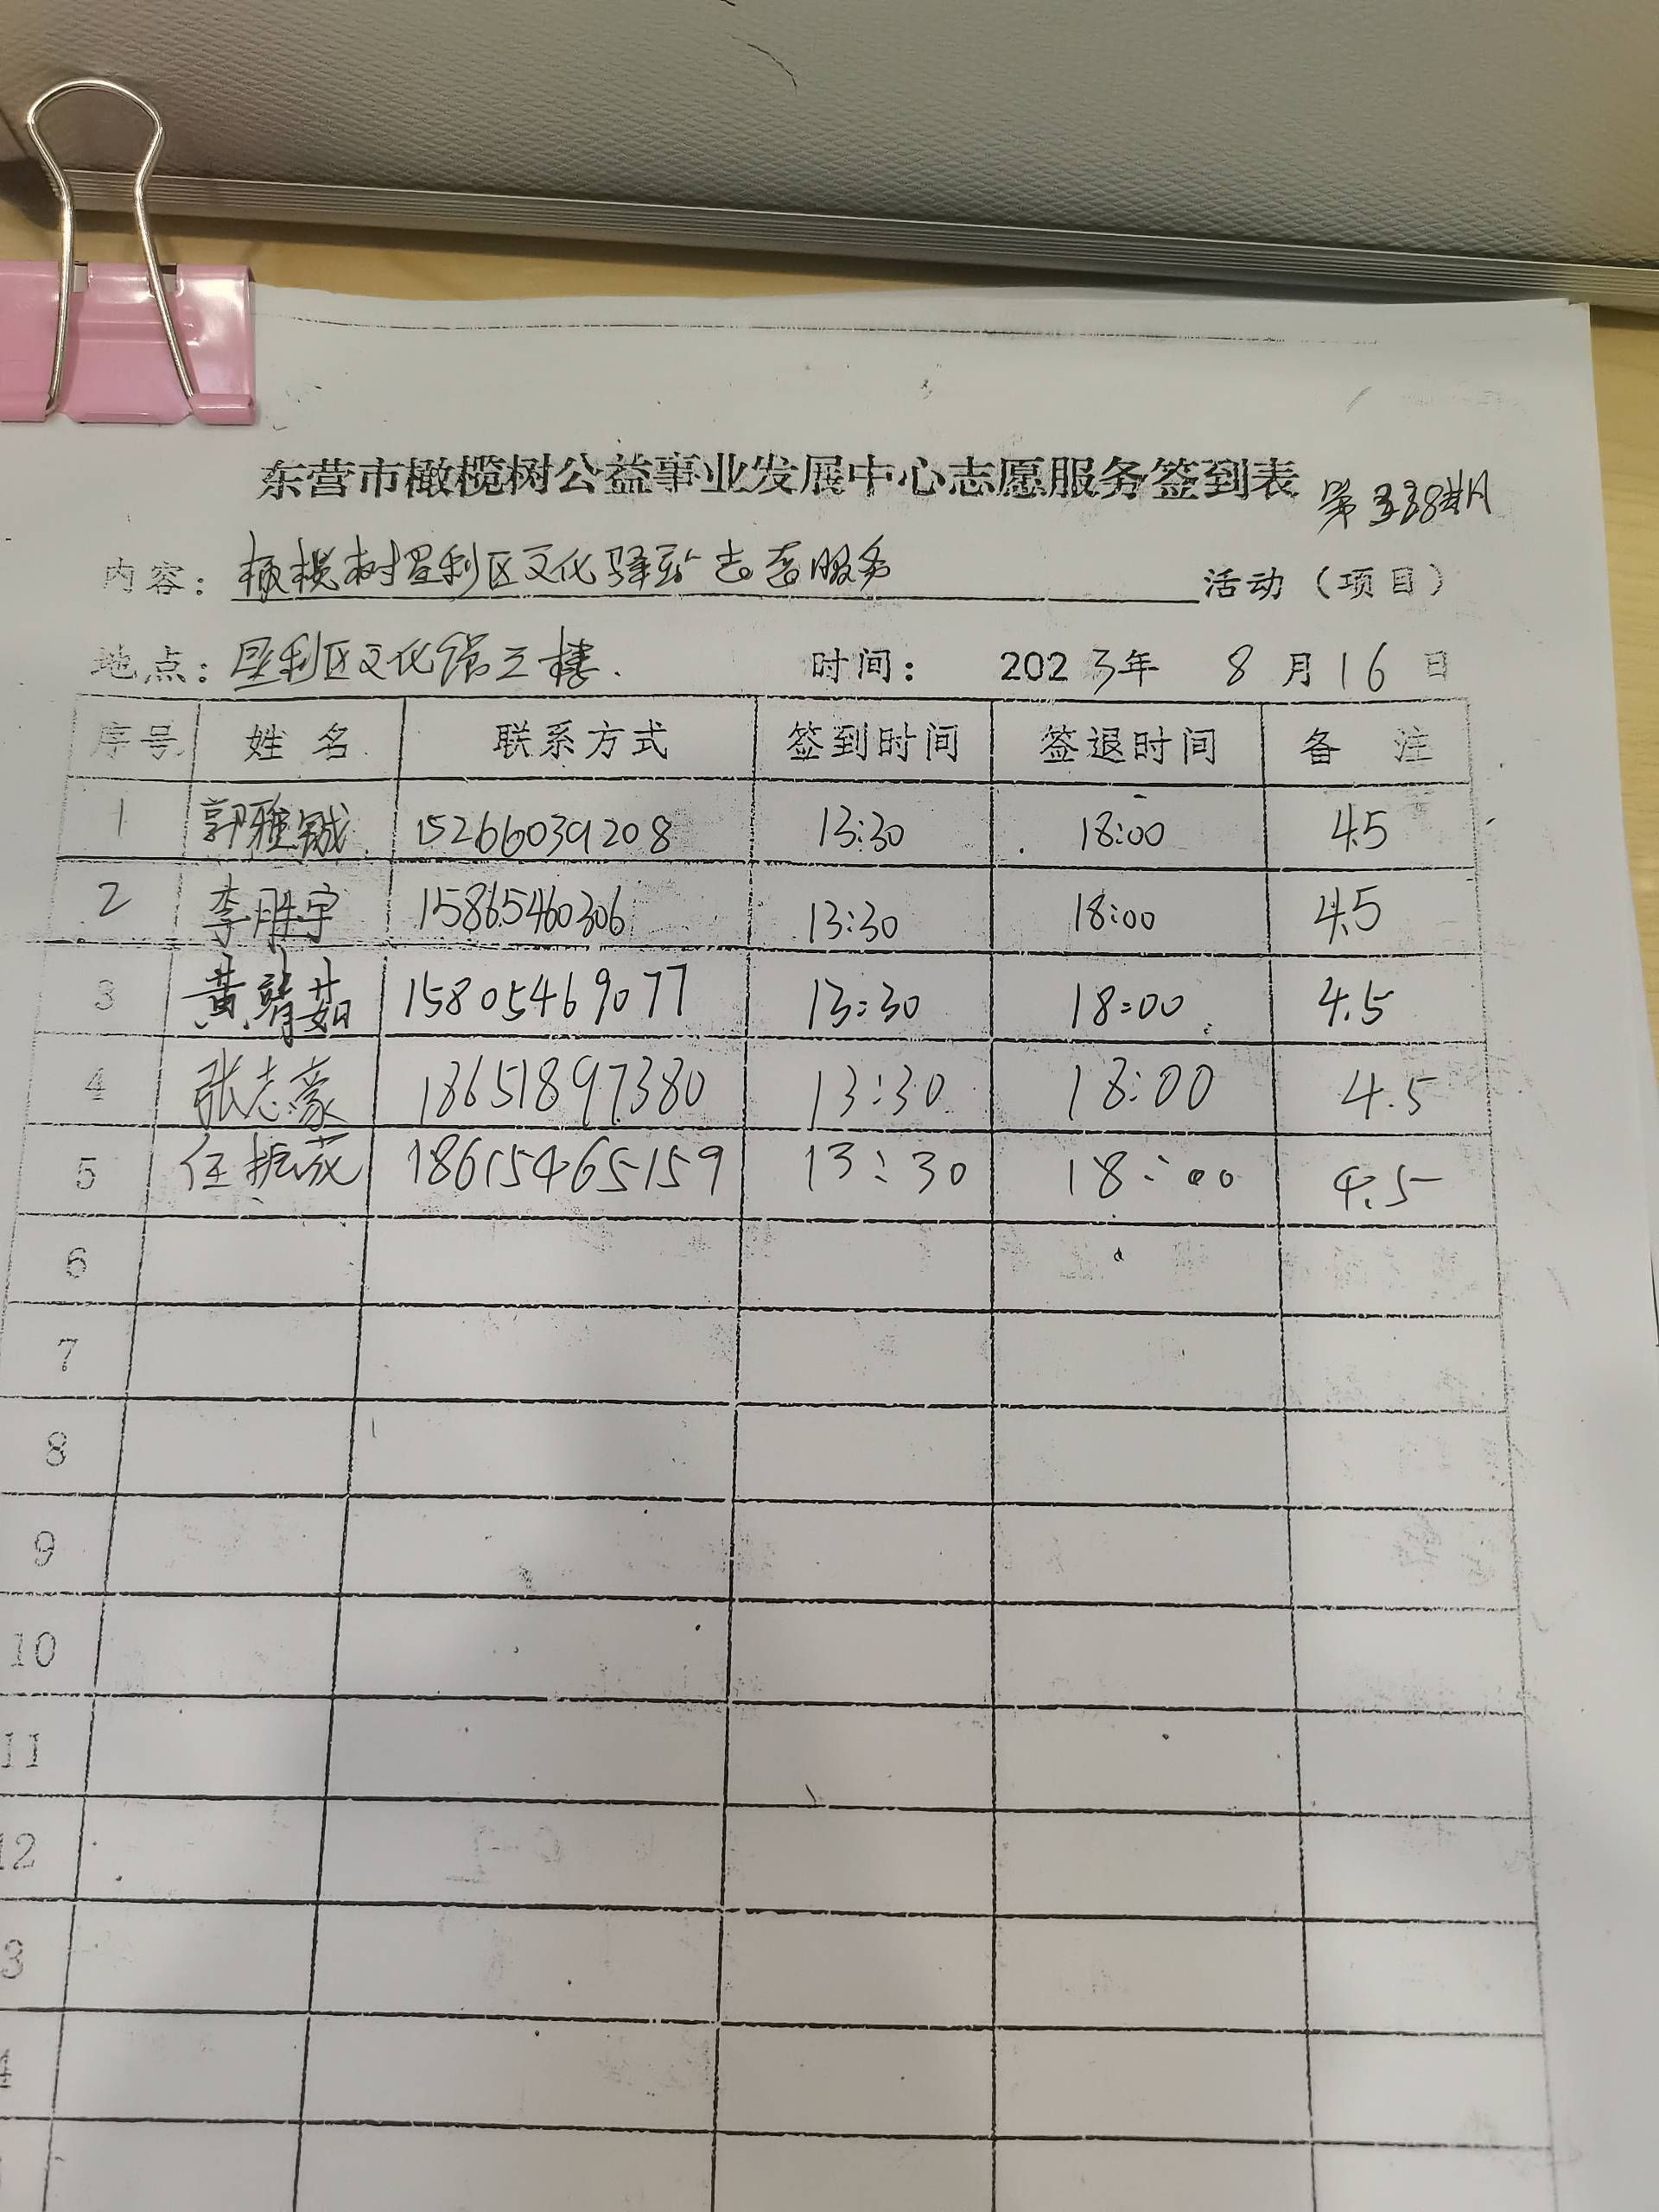 东营市橄榄树公益事业发展中心志愿服务签到表 第338期
内容：橄榄树垦利区文化驿站志愿服务 活动（项目）
地点：垦利区文化馆三楼. 时间： 2023年 8月16日
序号 姓名 联系方式 签到时间 签退时间 备 注
1 郭雅铖 15266039208 13:30 18:00 4.5
2 李胜宇 15865460306 13:30 18:00 4.5
3 黄靖茹 15805469077 13:30 18:00 4.5
4 张志豪 18651897380 13:30 18:00 4.5
5 任振茂 18615465159 13:30 18:00 4.5
6
7
8
9
10
11
12
3
4